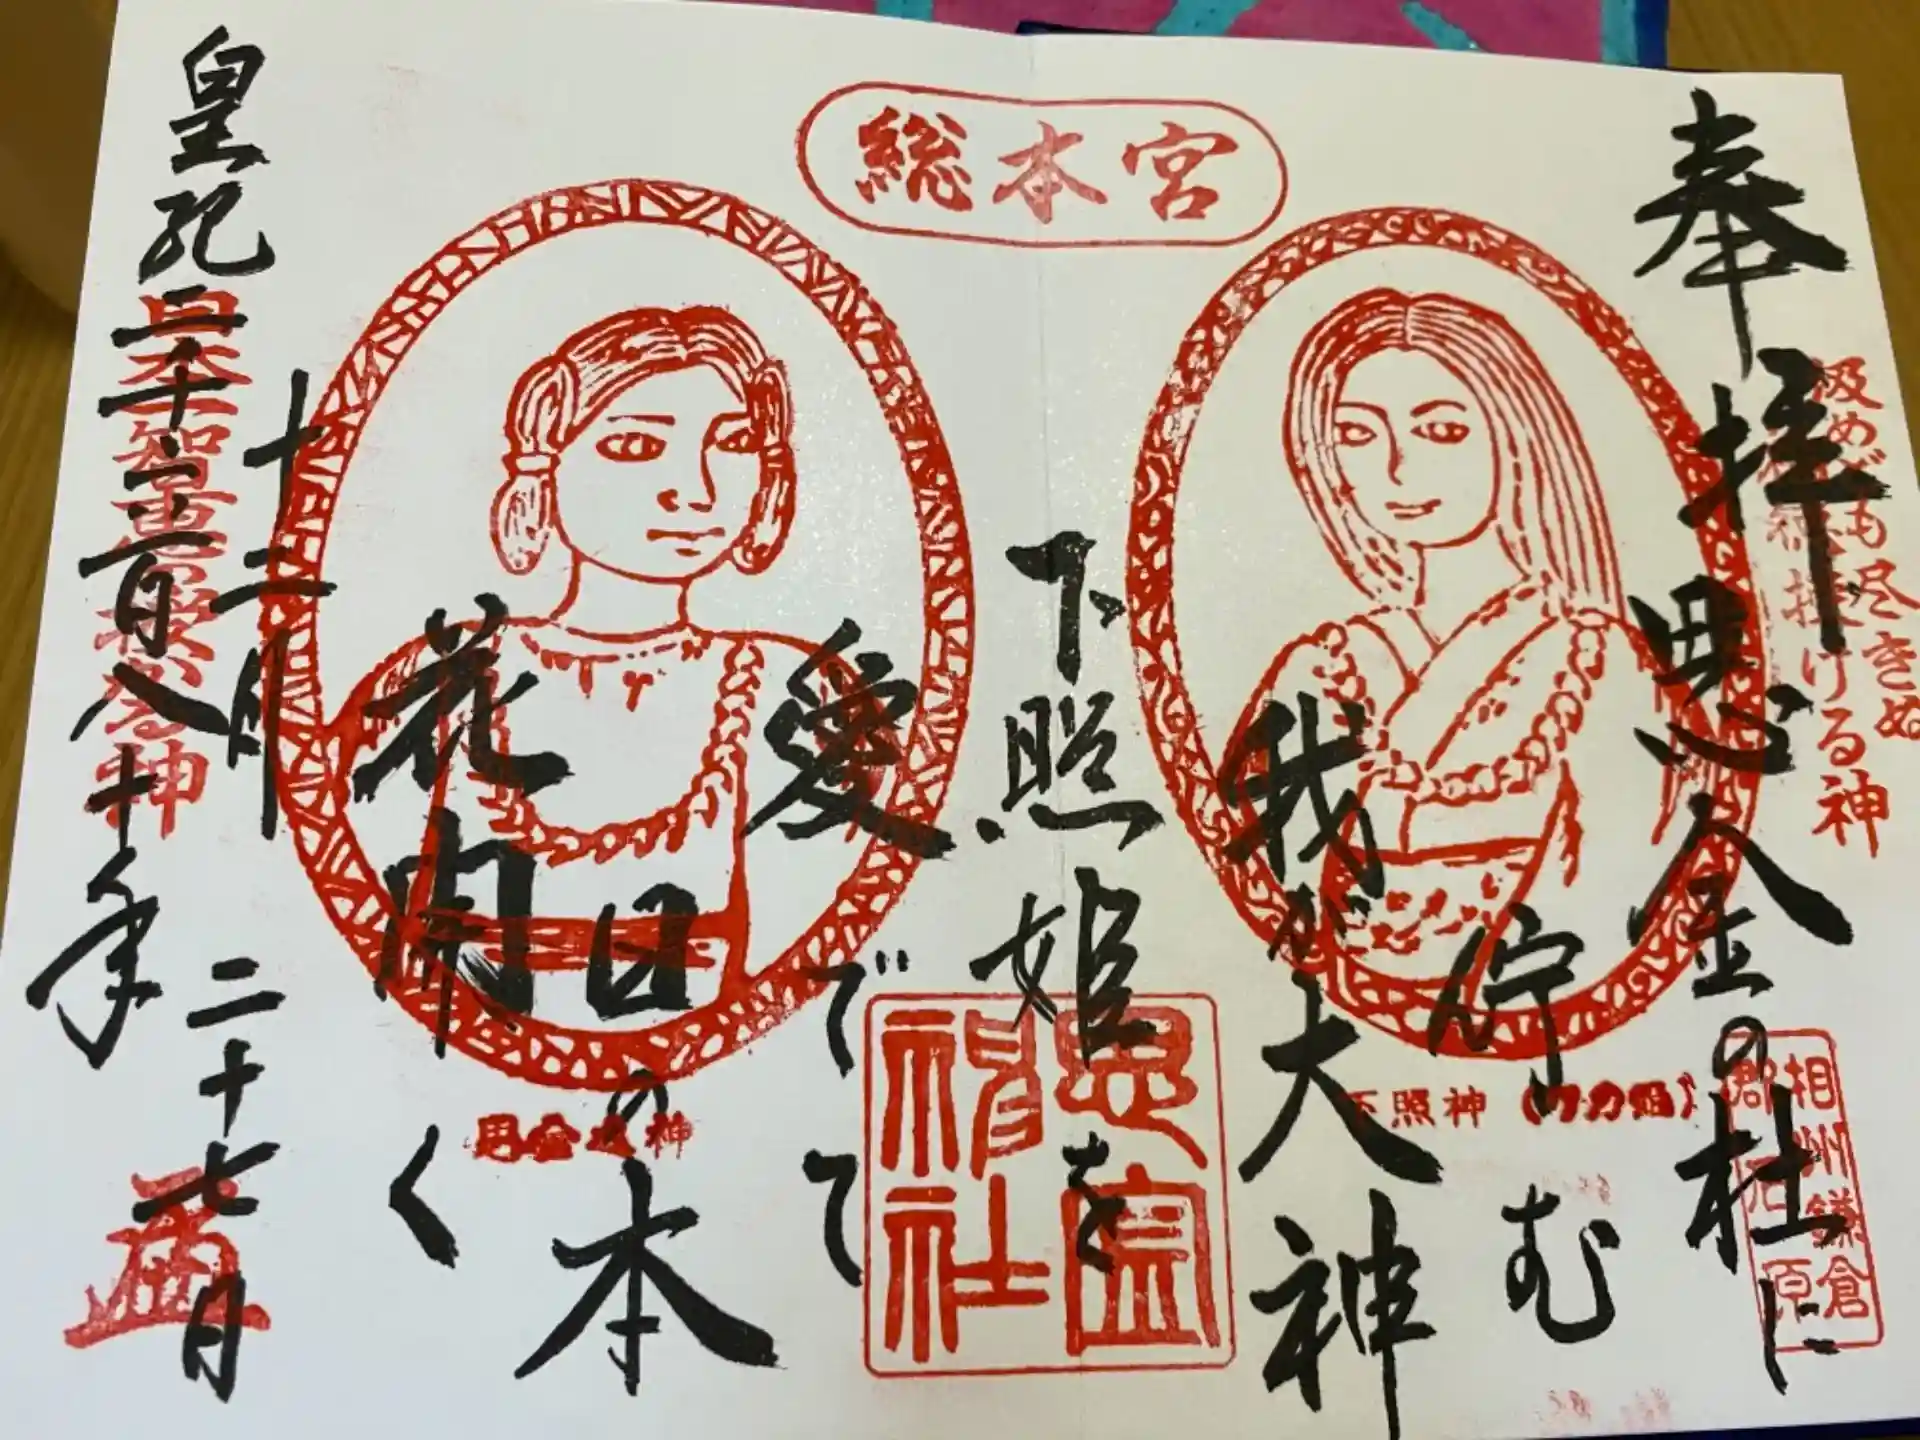 総本宮
奉拝
思金の杜に
佇む
我が大神
下照姫を
愛でて
日の本
花開く
皇紀二千六百八十年
十二月二十七日
汲めども尽きぬ
授ける神
日本智恵授かる神
下照神
思金神社
相州鎌倉
郡石原